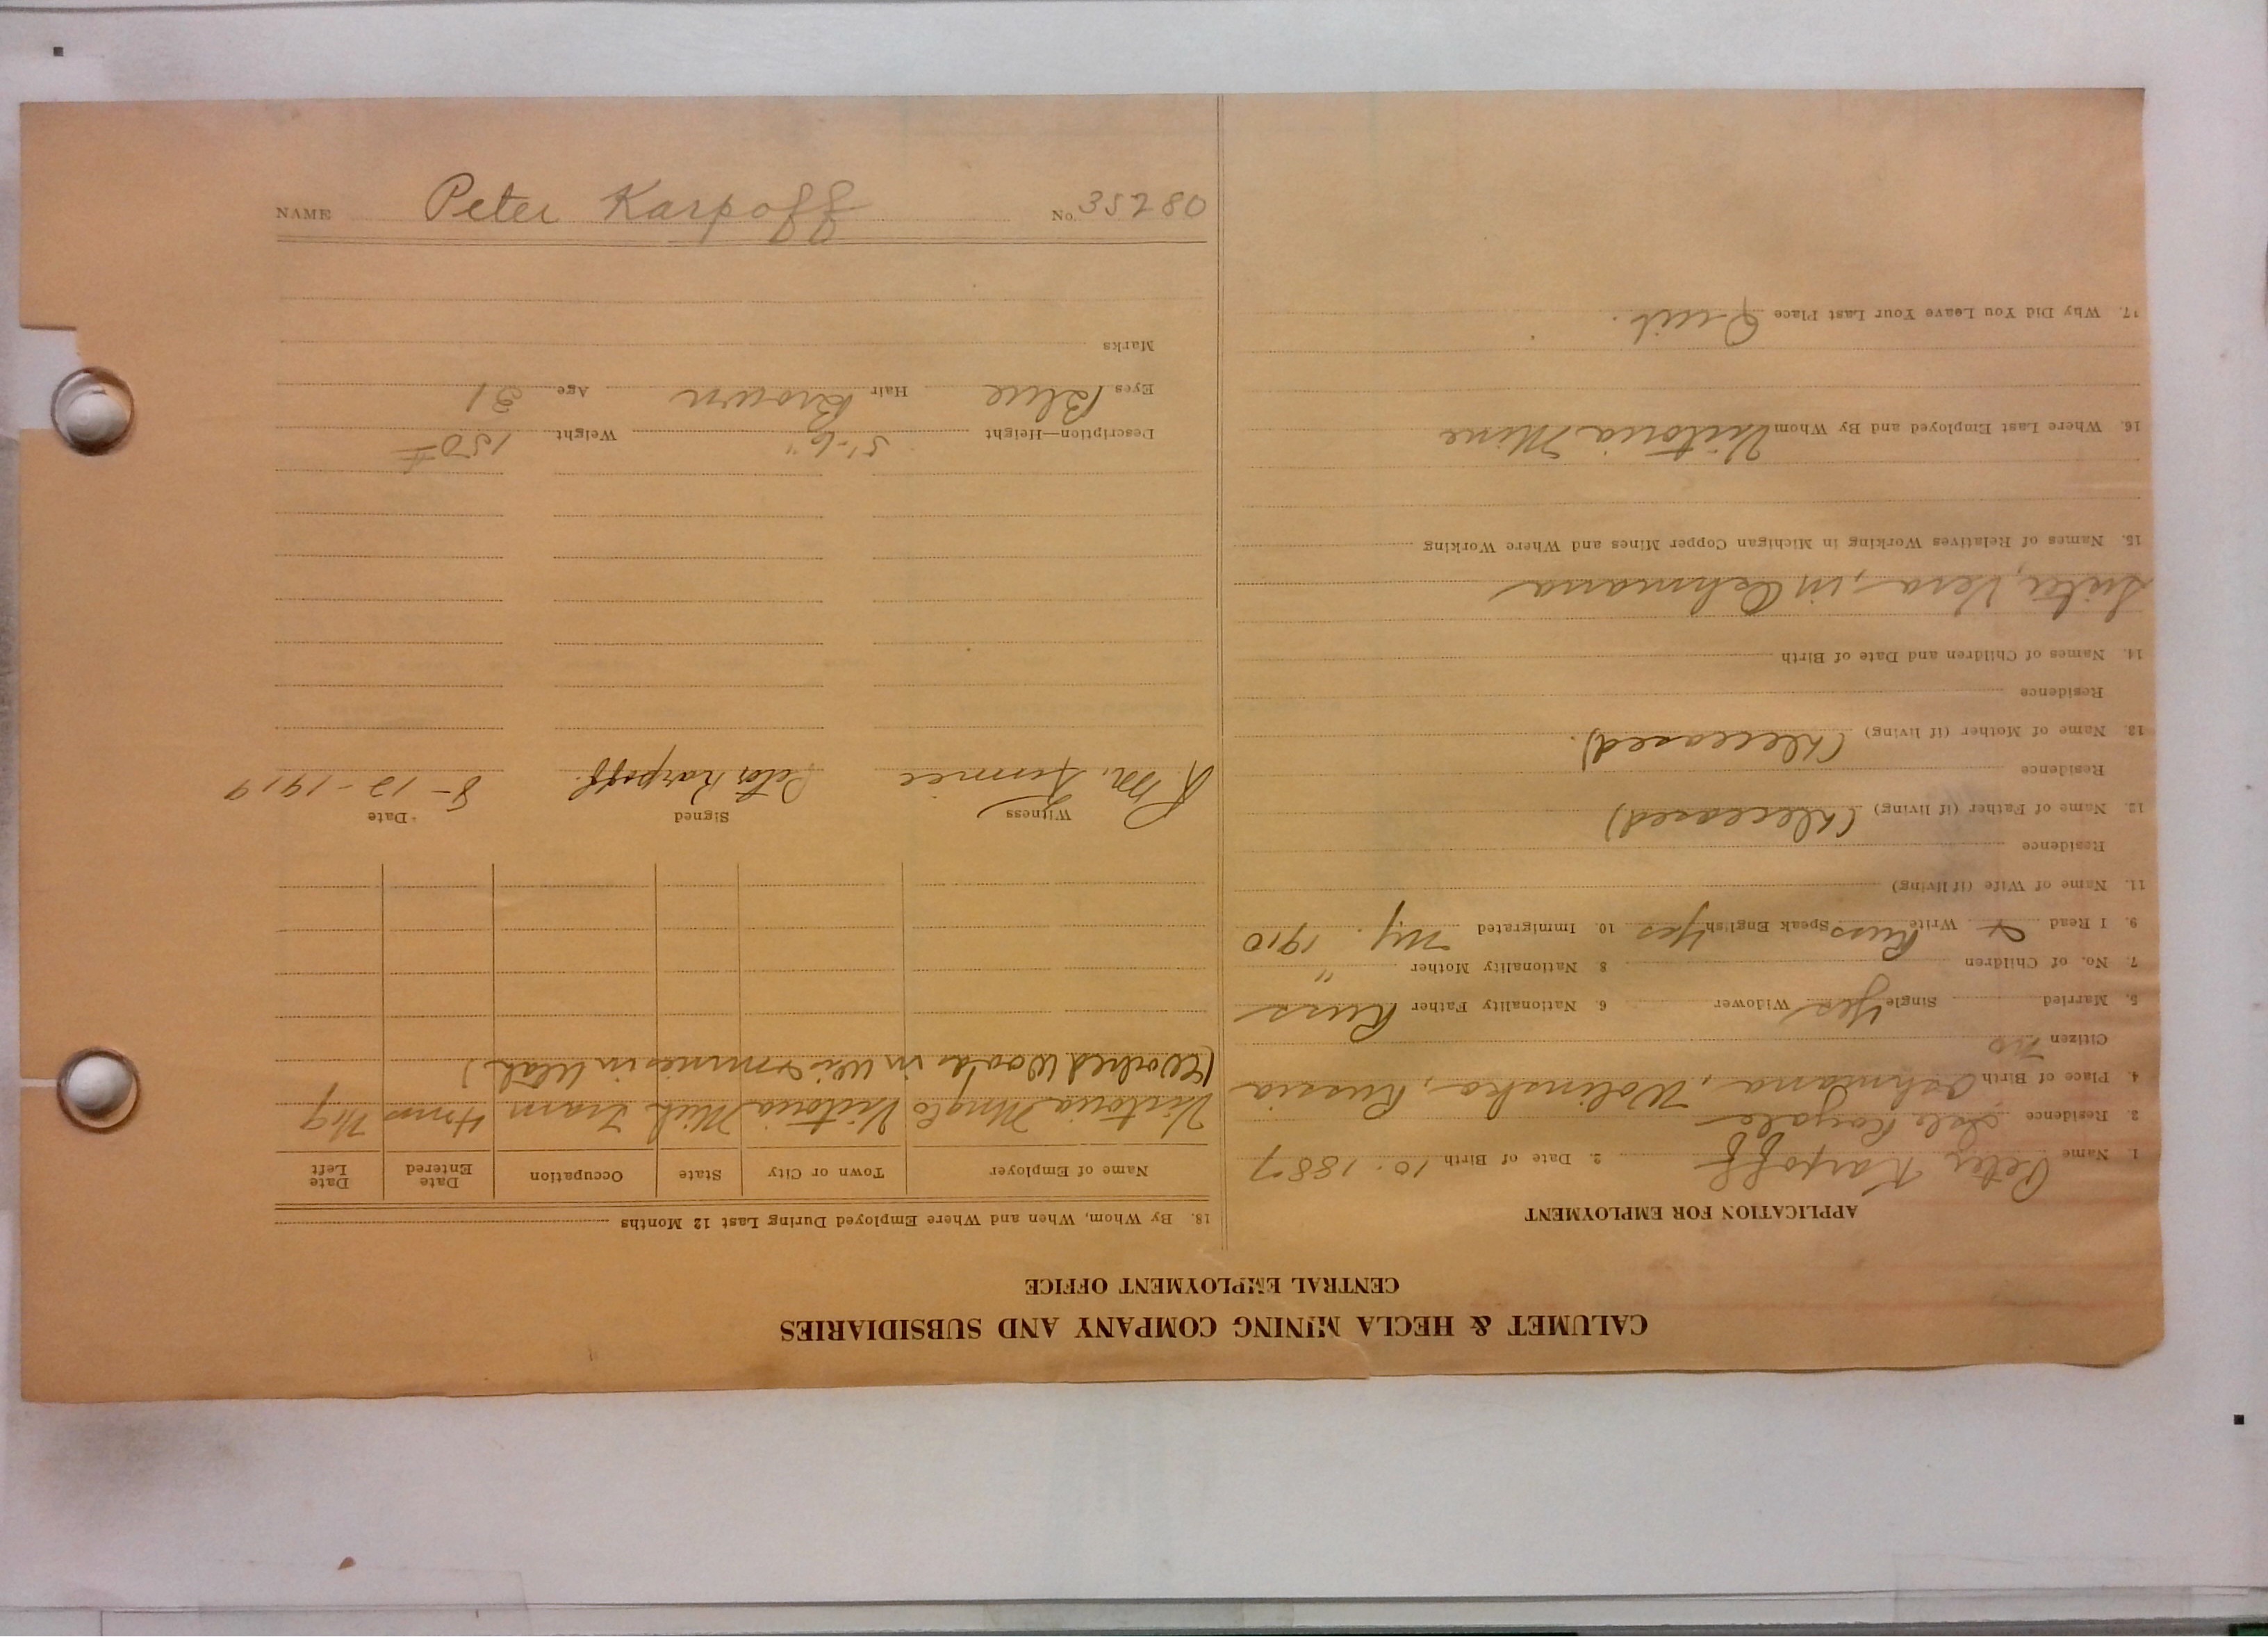 CALUMET & HECLA MINING COMPANY AND SUBSIDIARIES
CENTRAL EMPLOYMENT OFFICE
APPLICATION FOR EMPLOYMENT
1. Name Peter Karpoff 2. Date of Birth 10.1887
3. Residence Isle Royale
4. Place of Birth Oshmana, Wolinska, Russia
Citizen no
5. Married Single Yes Widower 6. Nationality Father Russ
7. No. of Children 8 Nationality Mother "
9. I Read & Write Russ Speak English Yes 10. Immigrated 1910
11. Name of Wife (if living)
Residence
12. Name of Father (if living) (Deceased)
Residence
13. Name of Mother (if living) (Deceased).
Residence
14. Names of Children and Date of Birth
Sister, Vera, in Oshmana
15. Names of Relatives Working in Michigan Copper Mines and Where Working
16. Where Last Employed and By Whom Victoria Mine
17. Why Did You Leave Your Last Place Quit.
18. By Whom, When and Where Employed During Last 12 Months
Name of Employer Town or City State Occupation Date Entered Date Left
Victoria Mng Co Victoria Mich Tram 4 mos
(Worked Woods in Wis & mines in Utah)
Witness Signed Date
Peter Karpoff. 8-12-1919
Description—Height 5'-6" Weight 150 ±
Eyes Blue Hair Brown Age 31
Marks
NAME Peter Karpoff No. 35280